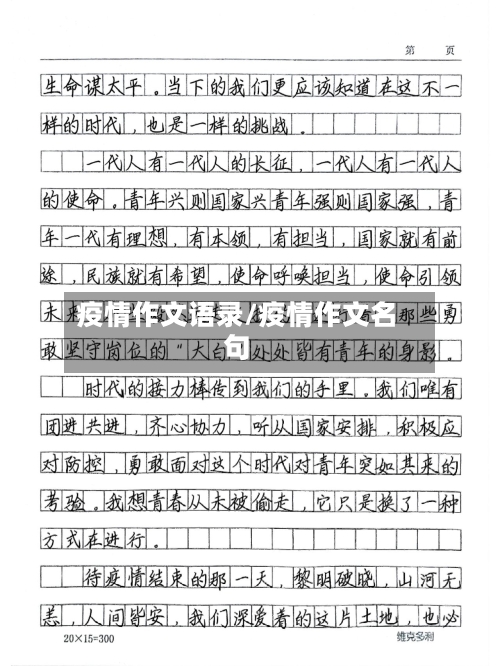 第 页
生命谋太平。当下的我们更应该知道在这不一
样的时代,也是一样的挑战。
一代人有一代人的长征,一代人有一代人
的使命。青年兴则国家兴青年强则国家强,青
年一代有理想,有本领,有担当,国家就有前
途,民族就有希望,使命呼唤担当,使命引领
未来
那些勇
疫情作文语录/疫情作文名
句
敢坚守岗位的“大白”处处皆有青年的身影。
时代的接力棒传到我们的手里。我们唯有
团进共进,齐心协力,听从国家安排,积极应
对防控,勇敢面对这个时代对青年突如其来的
考验。我想青春从未被偷走,它只是换了一种
方式在进行。
待疫情结束的那一天,黎明破晓,山河无
恙,人间皆安,我们深爱着的这片土地,也必
20×15=300 维克多利